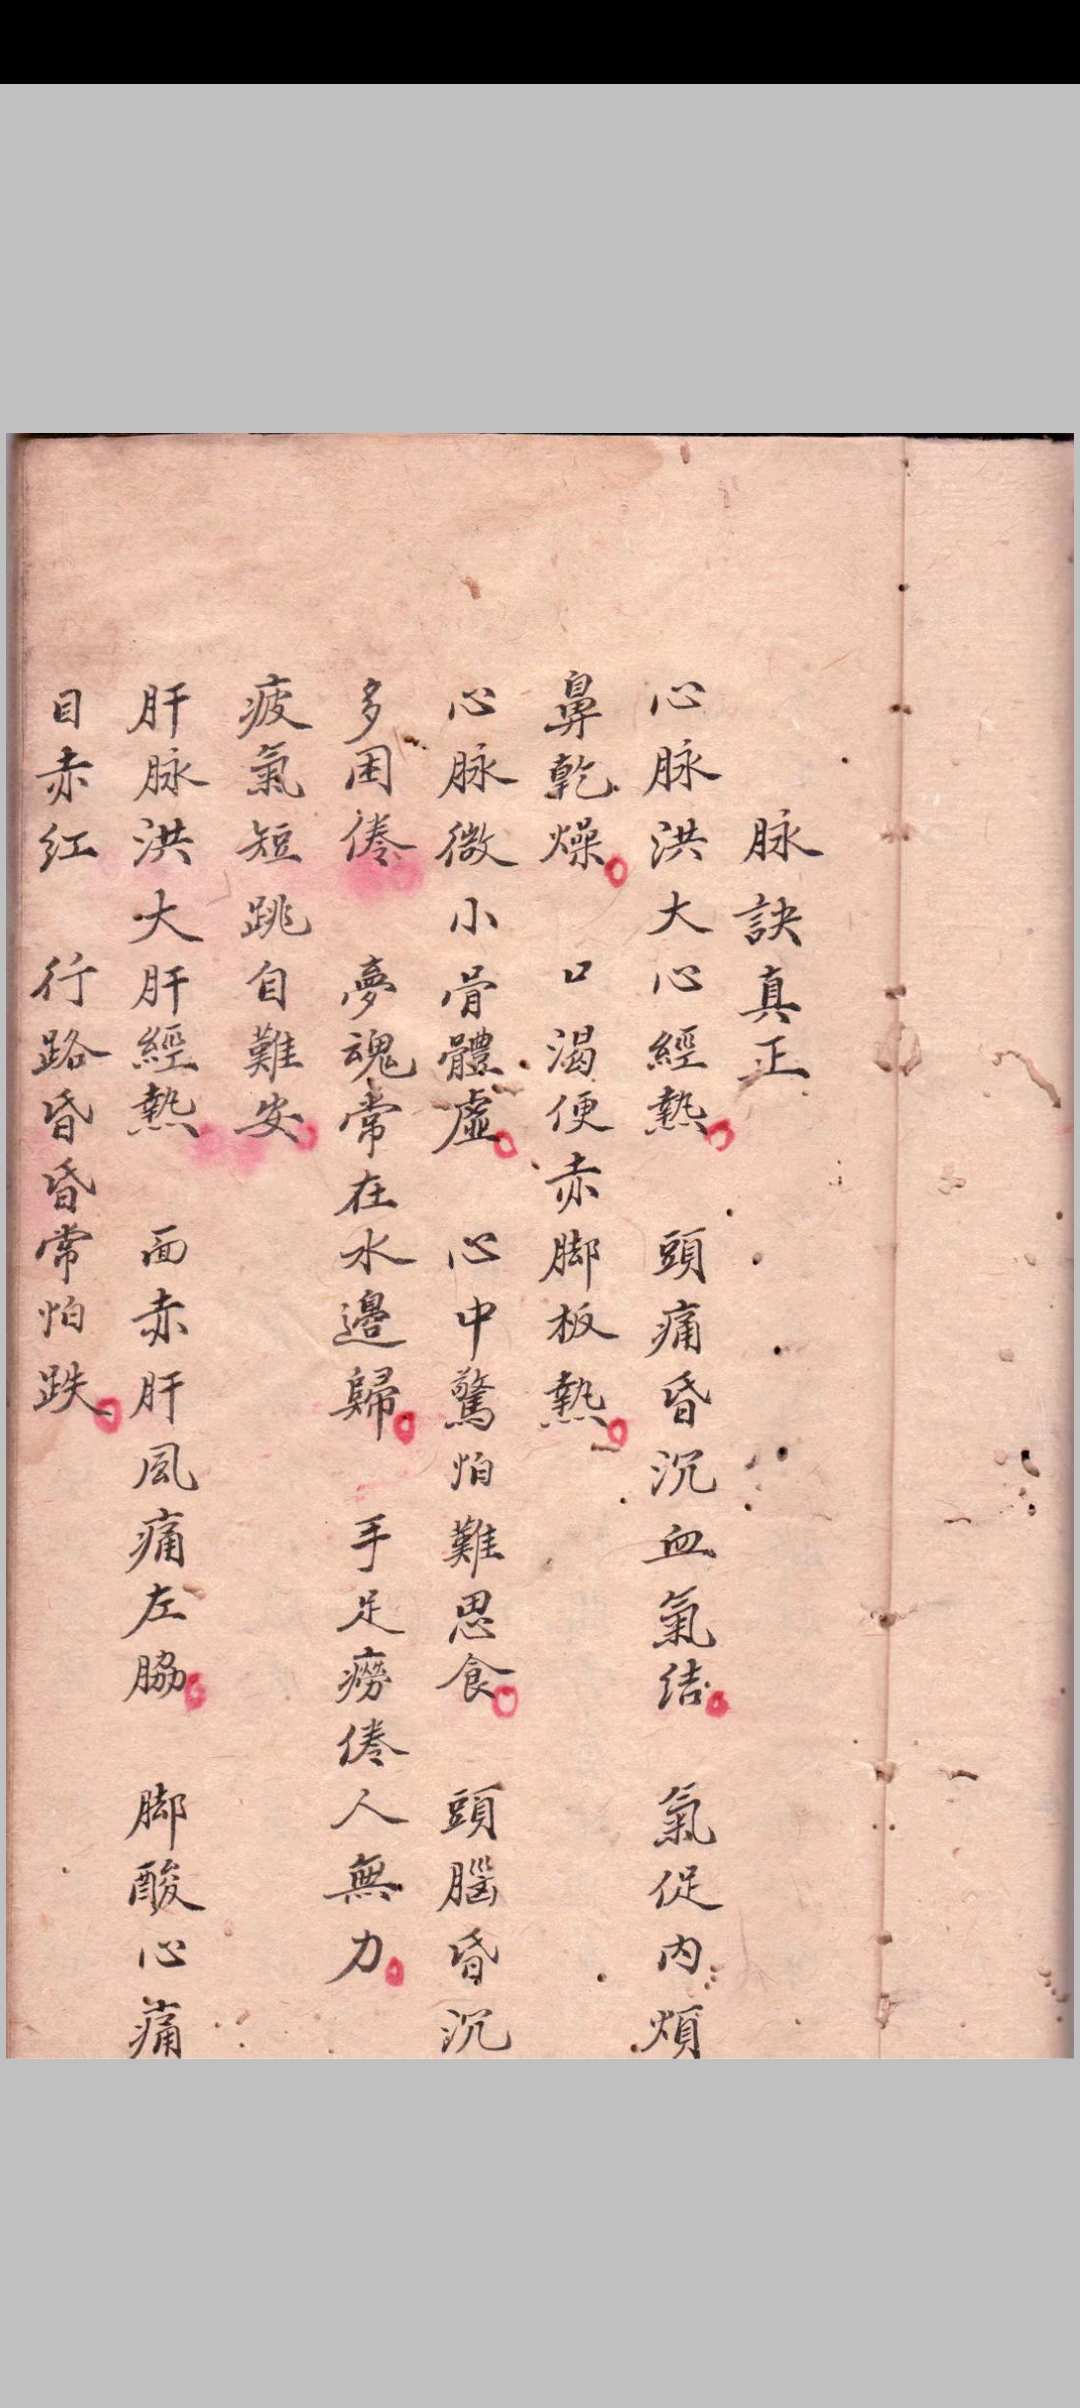 脉訣真正
心脉洪大心經熱 頭痛昏沉血氣结 氣促内煩
鼻乾燥 口渴便赤脚板熱
心脉微小骨體虛 心中驚怕難思食 頭腦昏沉
多困倦 夢魂常在水邊歸 手足癆倦人無力
疲氣短跳自難安
肝脉洪大肝經熱 面赤肝風痛左脇 脚酸心痛
目赤红 行路昏昏常怕跌